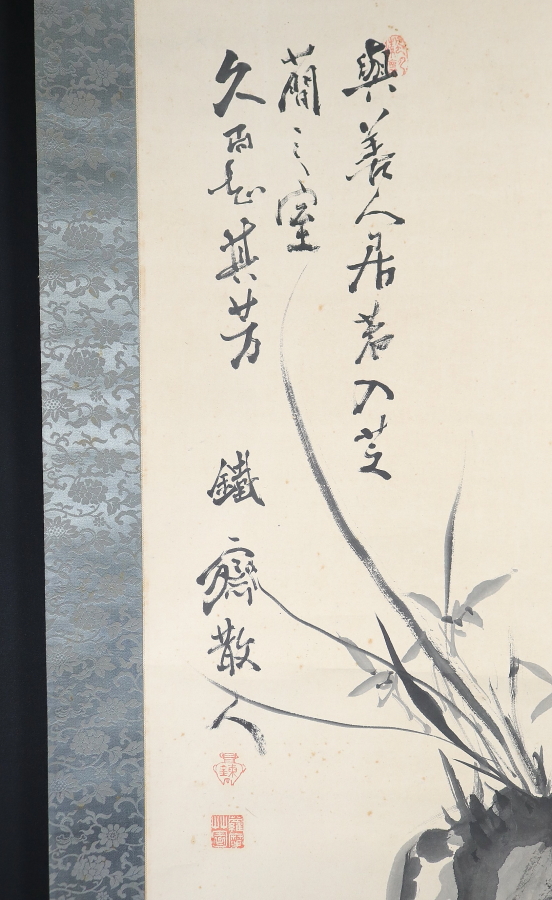 與善人居若入芝
蘭之室
久而忘其芳
鐵齋散人